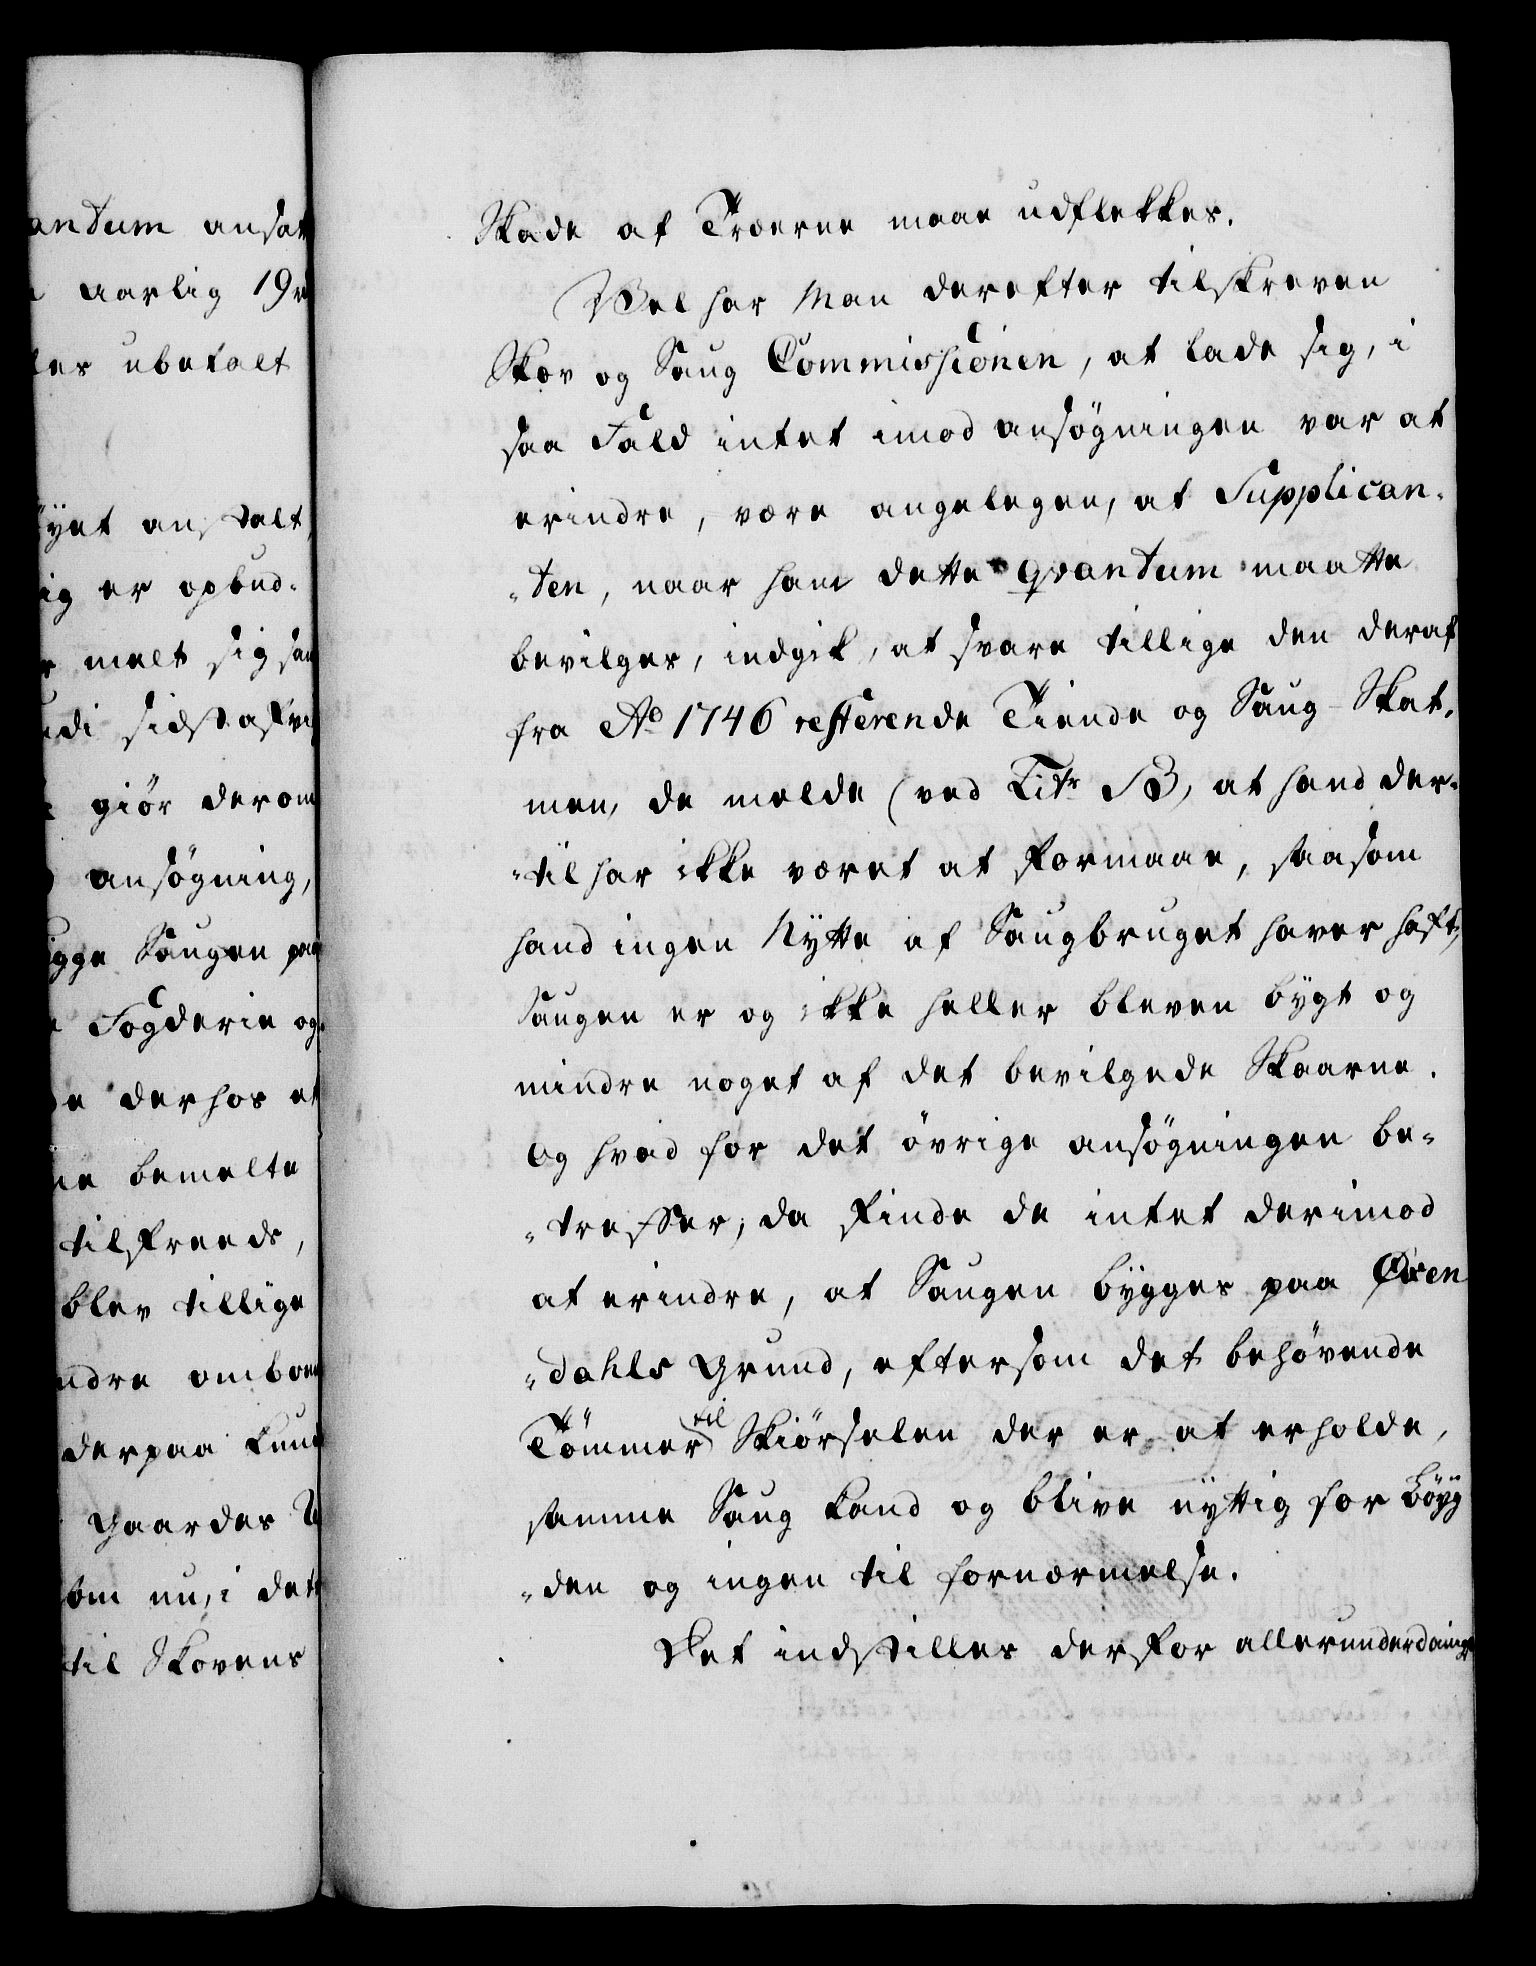 antum ansat
aarlig 19
les ubetalt
øyet anstalt,
ig er opbud=
melt sig
sidst
giør derom
ansøgning,
ygge Saugen paa
Fogderie og
derhos et
bemelte
tilfreeds,
blev tillige
ndre omboen
derpaa kund
Gaardes
om nu, i dette
til Skovens
Skade af Træerne maae udflekkes.
Vel har Man derefter tilskreven
Skov og Saug Commissionen, at lade sig, i
saa Fald intet imod ansøgningen var at
erindre, være angelegen, at Supplican=
"ten, naar ham dette qvantum maatte
bevilges, indgik, at svare tillige den deraf
fra Ao 1746 resterende Tiende og Saug-Skat,
men, de melde (ved Litr B, at hand der=
"til har ikke været at formaae, saasom
hand ingen Nytte af Saugbruget haver haft,
Saugen er og ikke heller bleven bygt og
mindre noget af det bevilgede Skaarne.
Og hvad for det øvrige ansøgningen be=
"treffer, da finde de intet derimod
at erindre, at Saugen bygges paa Øxen
"dahls Grund, eftersom det behøvende
Tømmer til Skiørselen der er at erholde,
samme Saug kand og blive nyttig for Bøyg
"den og ingen til fornærmelse.
Det indstilles derfor allerunderdanigst